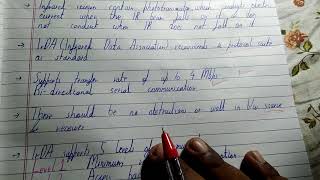 → Infrared receiver contain phototransistor which conducts electric
current when the IR beam falls on it & does
not conduct when IR does not fall on it
→ IrDA (Infrared Data Association) recommends a protocol suite
as standard
→ Supports transfer rate of up to 4 Mbps
Bi-directional serial communication
→ There should be no obstructions or wall in b/w source
& receiver
→ IrDA supports 5 levels of
Level 1 Minimum
Access